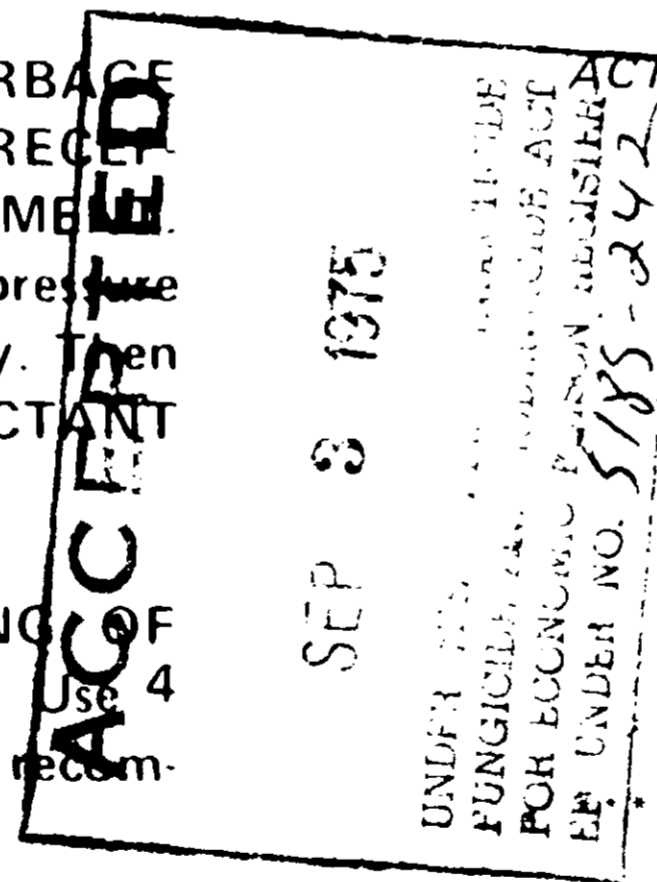 RBAGE
RECEP-
MB
pressure
y. Then
CTANT
NG OF
Use 4
recom-
ACT
ACCEPTED
SEP 3 1975
UNDER
FUNGICIDE ACT
FOR ECONOMIC POISON REGISTER-
ED UNDER NO. 5185-242